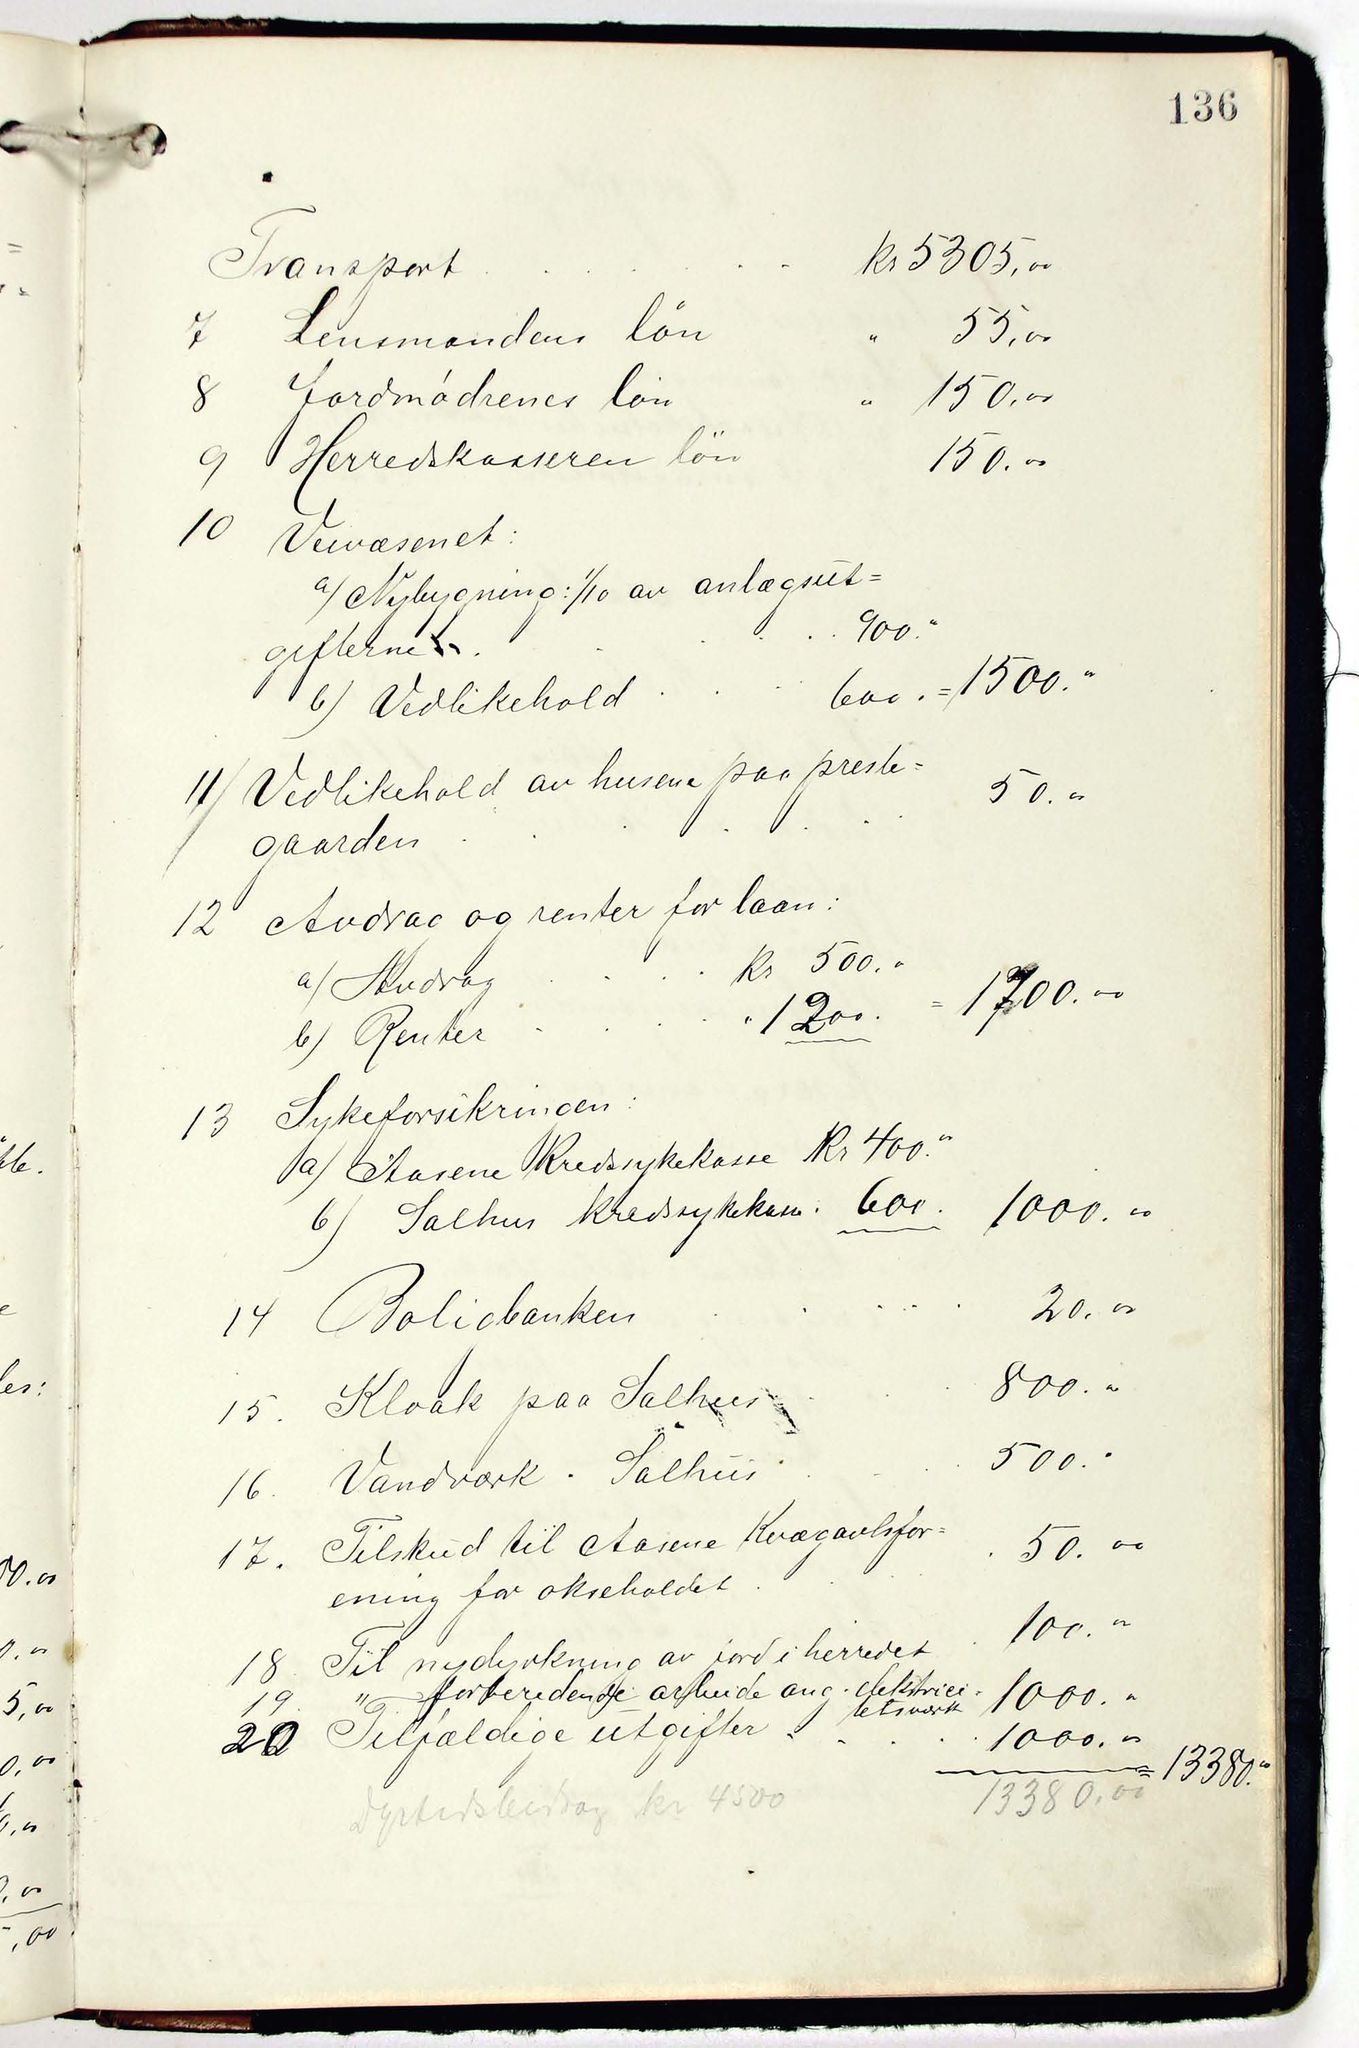 136
Transport . . . . . . . kr 5305,00
7 Lensmandens lön " 55,00
8 Jordmödrenes lön " 150,00
9 Herredskasseren lön 150.00
10 Veivæsenet:
a/ Nybygning: 1/10 av anlægsut=
gifterne . . . . 900."
b) Vedlikehold . . . 600. = 1500."
11/ Vedlikehold av husene paa preste=
gaarden . . . . . . 50."
12 Avdrag og renter for laan:
a/ Avdrag . . . . kr 500."
b) Renter . . . . " 1200. = 1700.00
13 Sykeforsikringen:
a) Aasene Kredssykekasse Kr 400."
b) Salhus kredssykekasse. 600. 1000.00
14 Boligbanken . . . . . 20.00
15. Kloak paa Salhus . . . 800."
16. Vandværk . Salhus . . . 500."
17. Tilskud til Aasene Kvægavlsfor=
ening for okseholdet . . . . 50.00
18 Til nydyrkning av jord i herredet . 100."
19. " forberedende arbeide ang. elektrici-
tetsværk 1000."
20 Tilfældige utgifter . . . . . 1000.00
= 13380."
Dyrtidsbidrag kr 4500 13380.00
10.00
5,00
0,00
,00